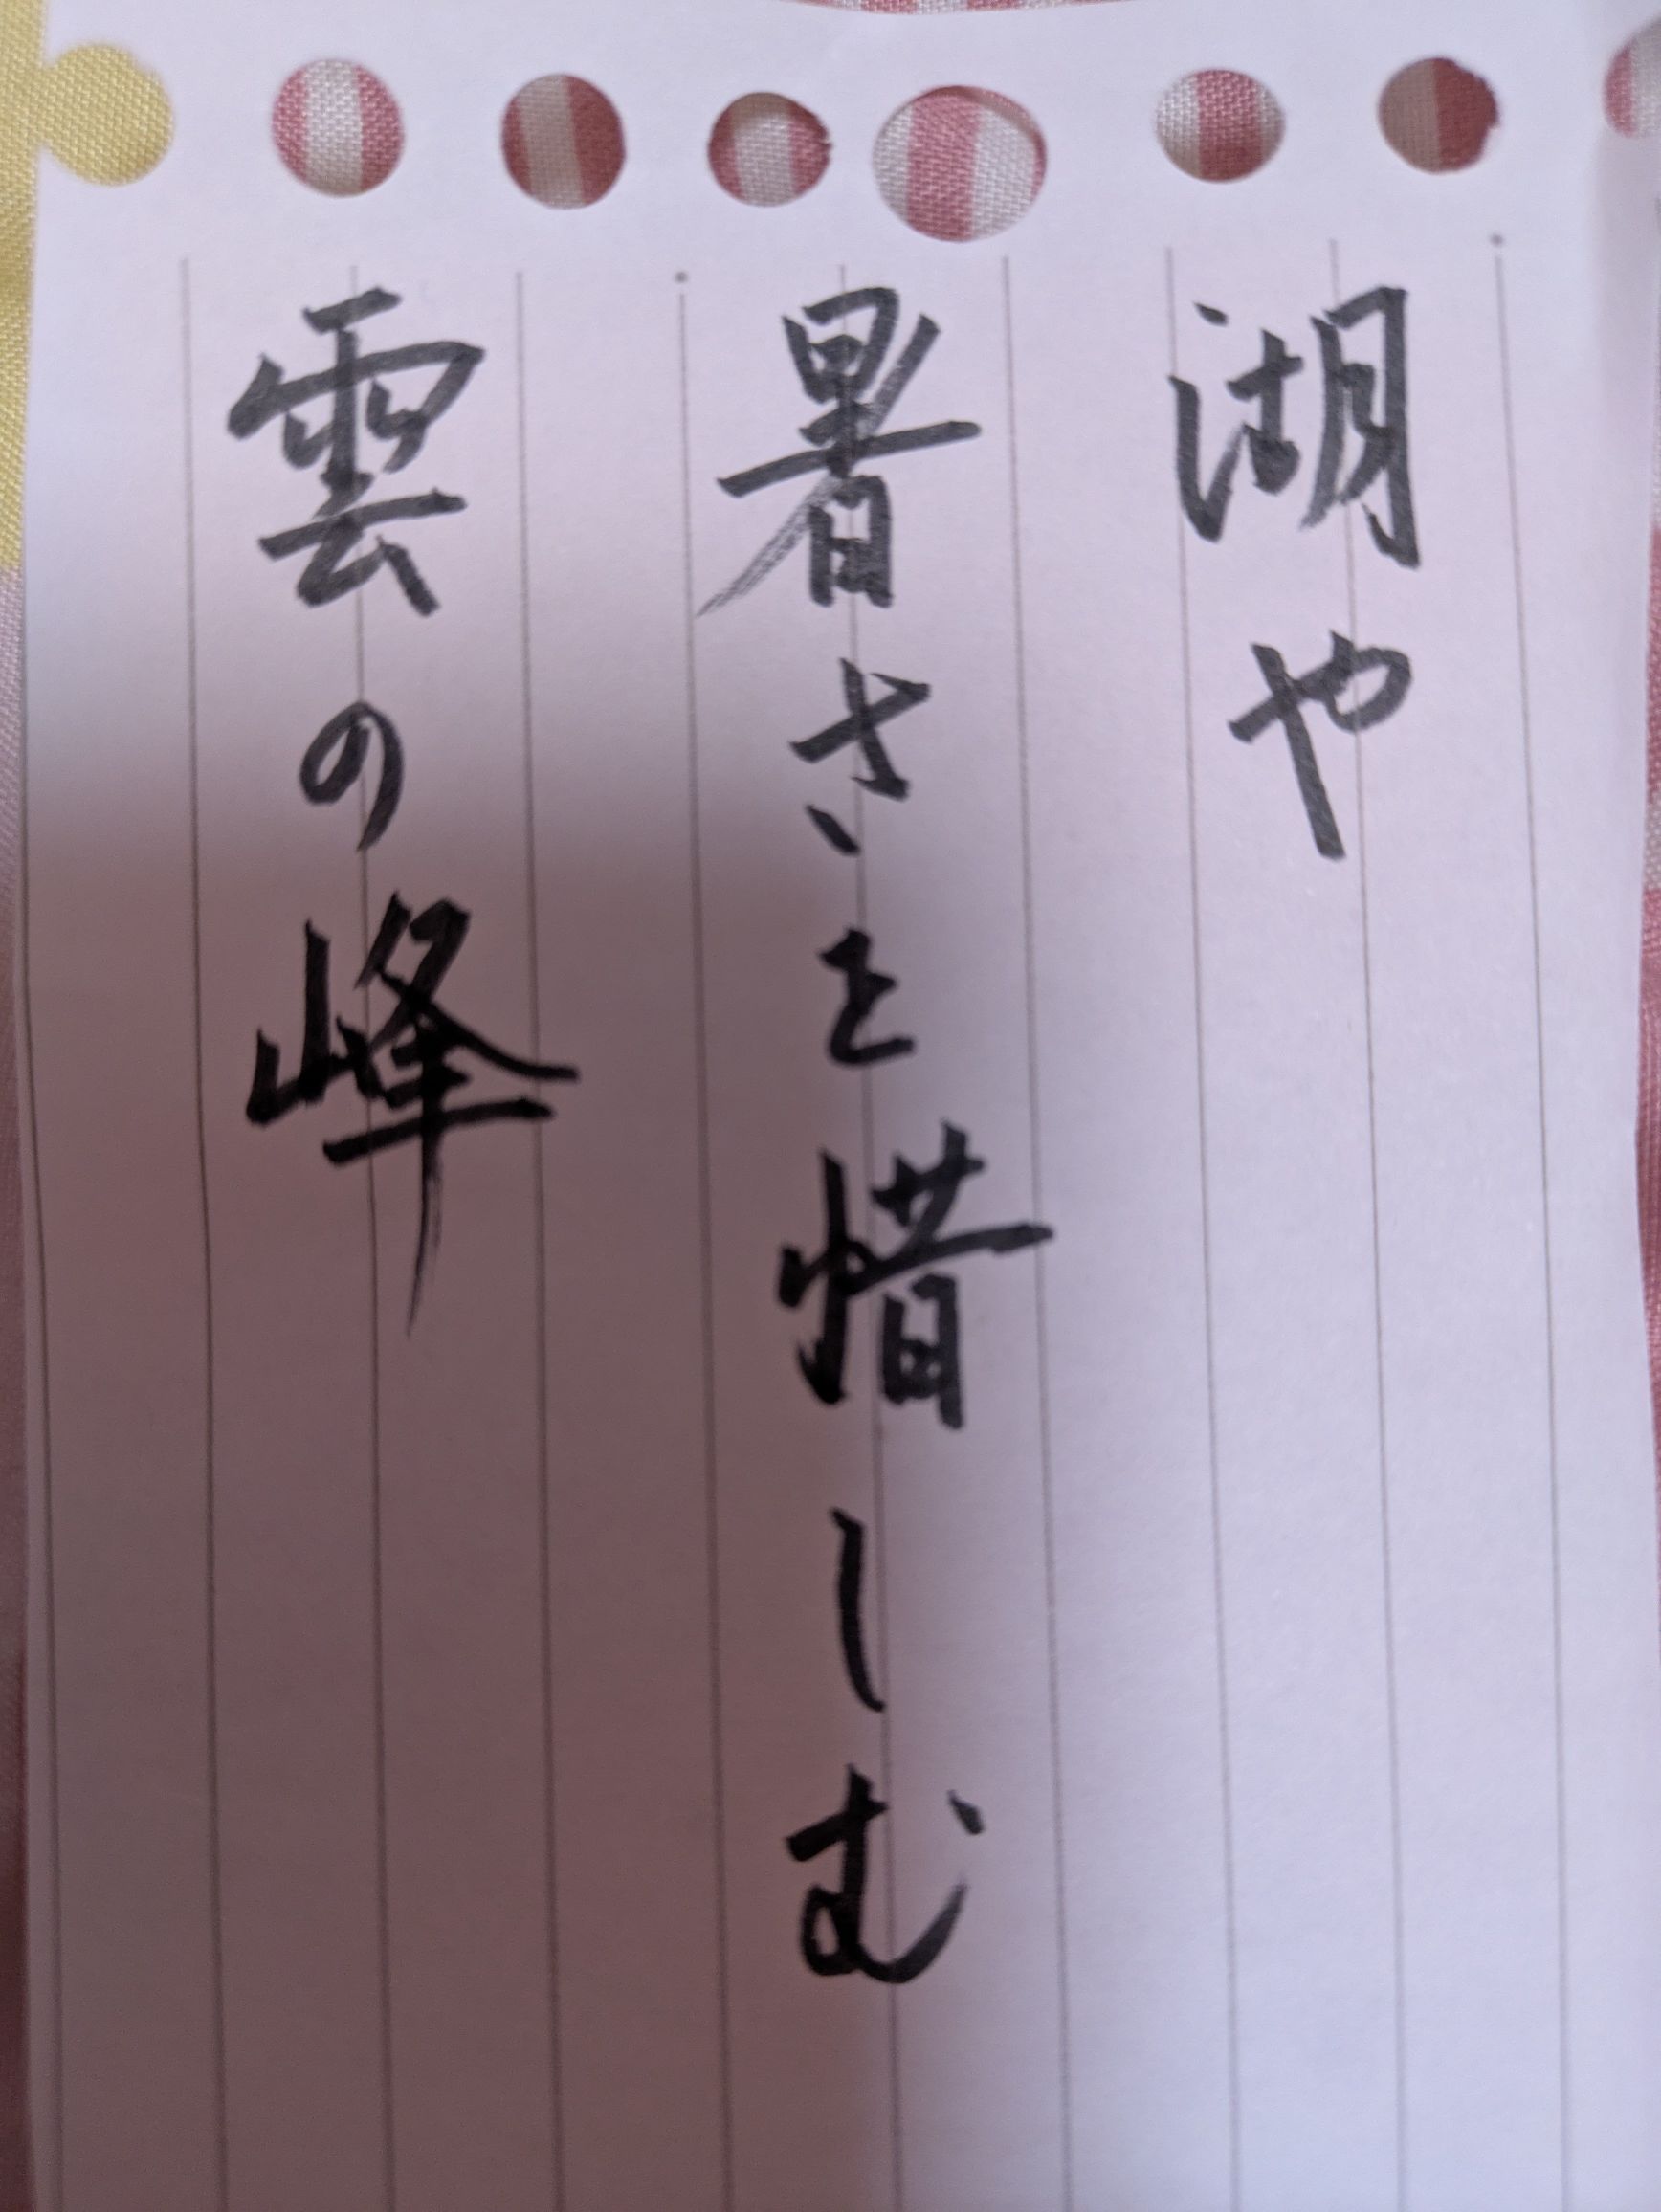 湖や
暑さを惜しむ
雲の峰